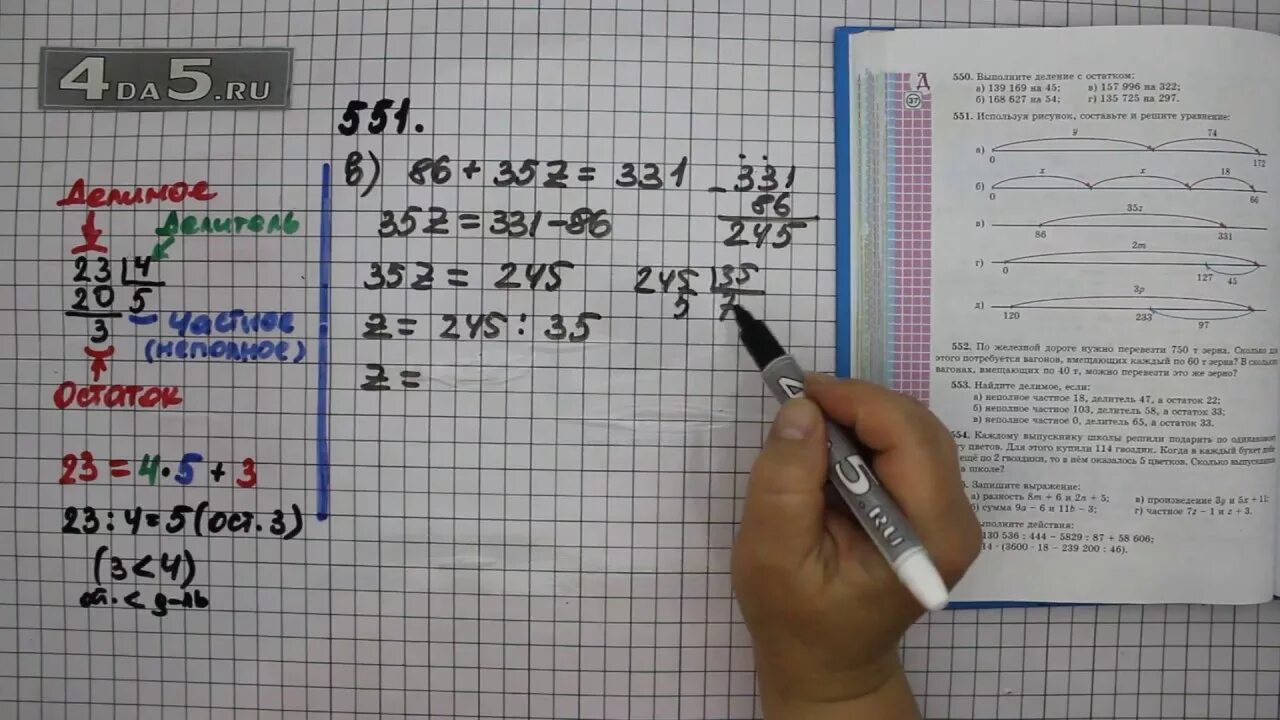 4DA5.RU
551.
Делимое
Делитель
23 4
20 5
3
Частное
(неполное)
Остаток
23 = 4 · 5 + 3
23 : 4 = 5 (ост. 3)
(3 < 4)
ост. < д-ль
в) 86 + 35z = 331
35z = 331 - 86
35z = 245
z = 245 : 35
z =
- 331
86
245
245 35
5 7
5.RU
Д
37
550. Выполните деление с остатком:
а) 139 169 на 45; в) 157 996 на 322;
б) 168 627 на 54; г) 135 725 на 297.
551. Используя рисунок, составьте и решите уравнение:
y 74
а) 0 172
x x 18
б) 0 66
35z
в) 86 331
2m
г) 0 127 45
3p
д) 120 233 97
552. По железной дороге нужно перевезти 750 т зерна. Сколько для
этого потребуется вагонов, вмещающих каждый по 60 т зерна? В скольких
вагонах, вмещающих по 40 т, можно перевезти это же зерно?
553. Найдите делимое, если:
а) неполное частное 18, делитель 47, а остаток 22;
б) неполное частное 103, делитель 58, а остаток 33;
в) неполное частное 0, делитель 65, а остаток 33.
554. Каждому выпускнику школы решили подарить по одинаковому
ту цветов. Для этого купили 114 гвоздик. Когда в каждый букет
ещё по 2 гвоздики, то в нём оказалось 5 цветков. Сколько
в школе?
Запишите выражение:
а) разность 8m + 6 и 2n + 5; в) произведение 3p и 5x + 1
б) сумма 9a - 6 и 11b - 3; г) частное 7z - 1 и z + 3.
ыполните действия:
130 536 : 444 - 5829 : 87 + 58 606;
14 · (3600 · 18 - 239 200 : 46).